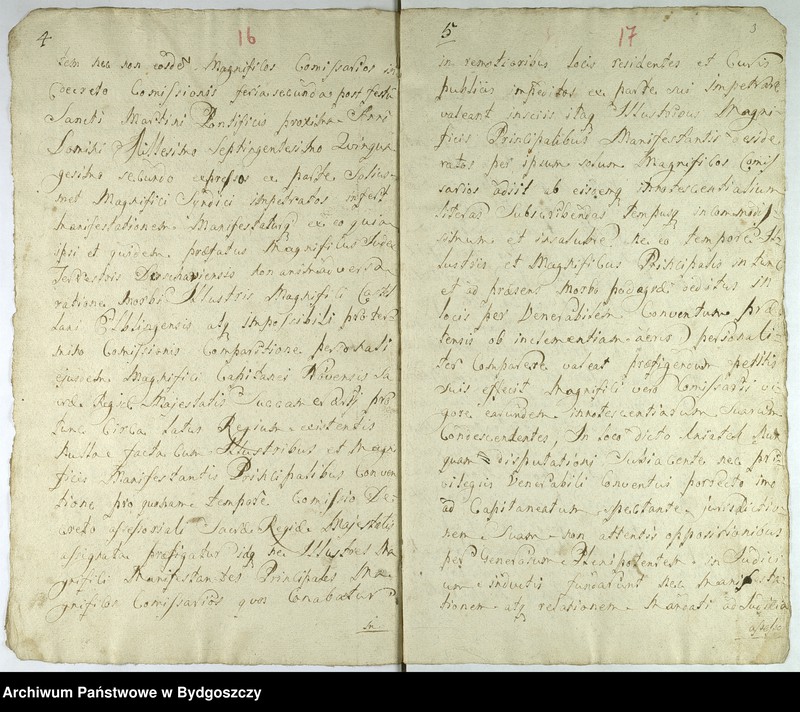 4 16
tem nec non eosdem Magnificos Comissarios in
Decreto Comissionis feria secunda post festum
Sancti Martini Pontificis proxima Anni
Domini Millesimo Septingentesimo Quinqua
gesimo secundo expresso ex parte Ipsius
met Magnifici Syndici impetratos infert
manifestationem. Manifestaturq ex eo quia
ipsi et quidem præfatus Magnificus Judex
Terrestris non animadversa
ratione Morbi Illustris Magnifici Castel
lani Elbingensis atq impossibili præter
misso Comissionis Comparitione personali
ejusdem Magnifici Capitanei
cræ Regiæ Majestatis pro
tunc Circa latus Regium existentis
Nulla facta cum Illustribus et Magni
ficis Manifestantis Principalibus Conven
tione pro quonam tempore Comissio De
creto assessoriali Sacræ Regiæ Majestatis
assignata præfigatur idq ne Illustres Ma
gnifici Manifestantes Principales Ma
gnificos Comissarios quos Conabatur
in
5 17
in remotioribus locis residentes et Curis
publicis impeditos ex parte sui impetrare
valeant insciis itaq Illustribus Magni
ficis Principalibus Manifestantis deside
ratos per ipsum solum Magnificos Comis
sarios adiit ab eisdemq innotescentiarum
literas Subscribendas tempusq incommodis
simum et insalubre ne eo tempore Il
lustris et Magnificus Principalis in tunc
et ad præsens morbo podagræ deditus in
locis per Venerabilem Conventum præ
tensis ob inclementiam aeris personali
ter Comparere valeat præfigendum petitis
suis effecit Magnifici vero Comissarii vi
gore earundem innotescentiarum suarum
Condescendentes, In loco dicto nun
quam disputationi Subjacente nec pri
vilegiis Venerabili Conventus porrecto imo
ad Capitaneatum spectante jurisdictio
nem Suam non attentis oppositionibus
per Generosum Plenipotentem in Judici
um inductis fundarunt nec Manifesta
tionem atq relationem Mandati ad Judicia
assesso
Archiwum Państwowe w Bydgoszczy